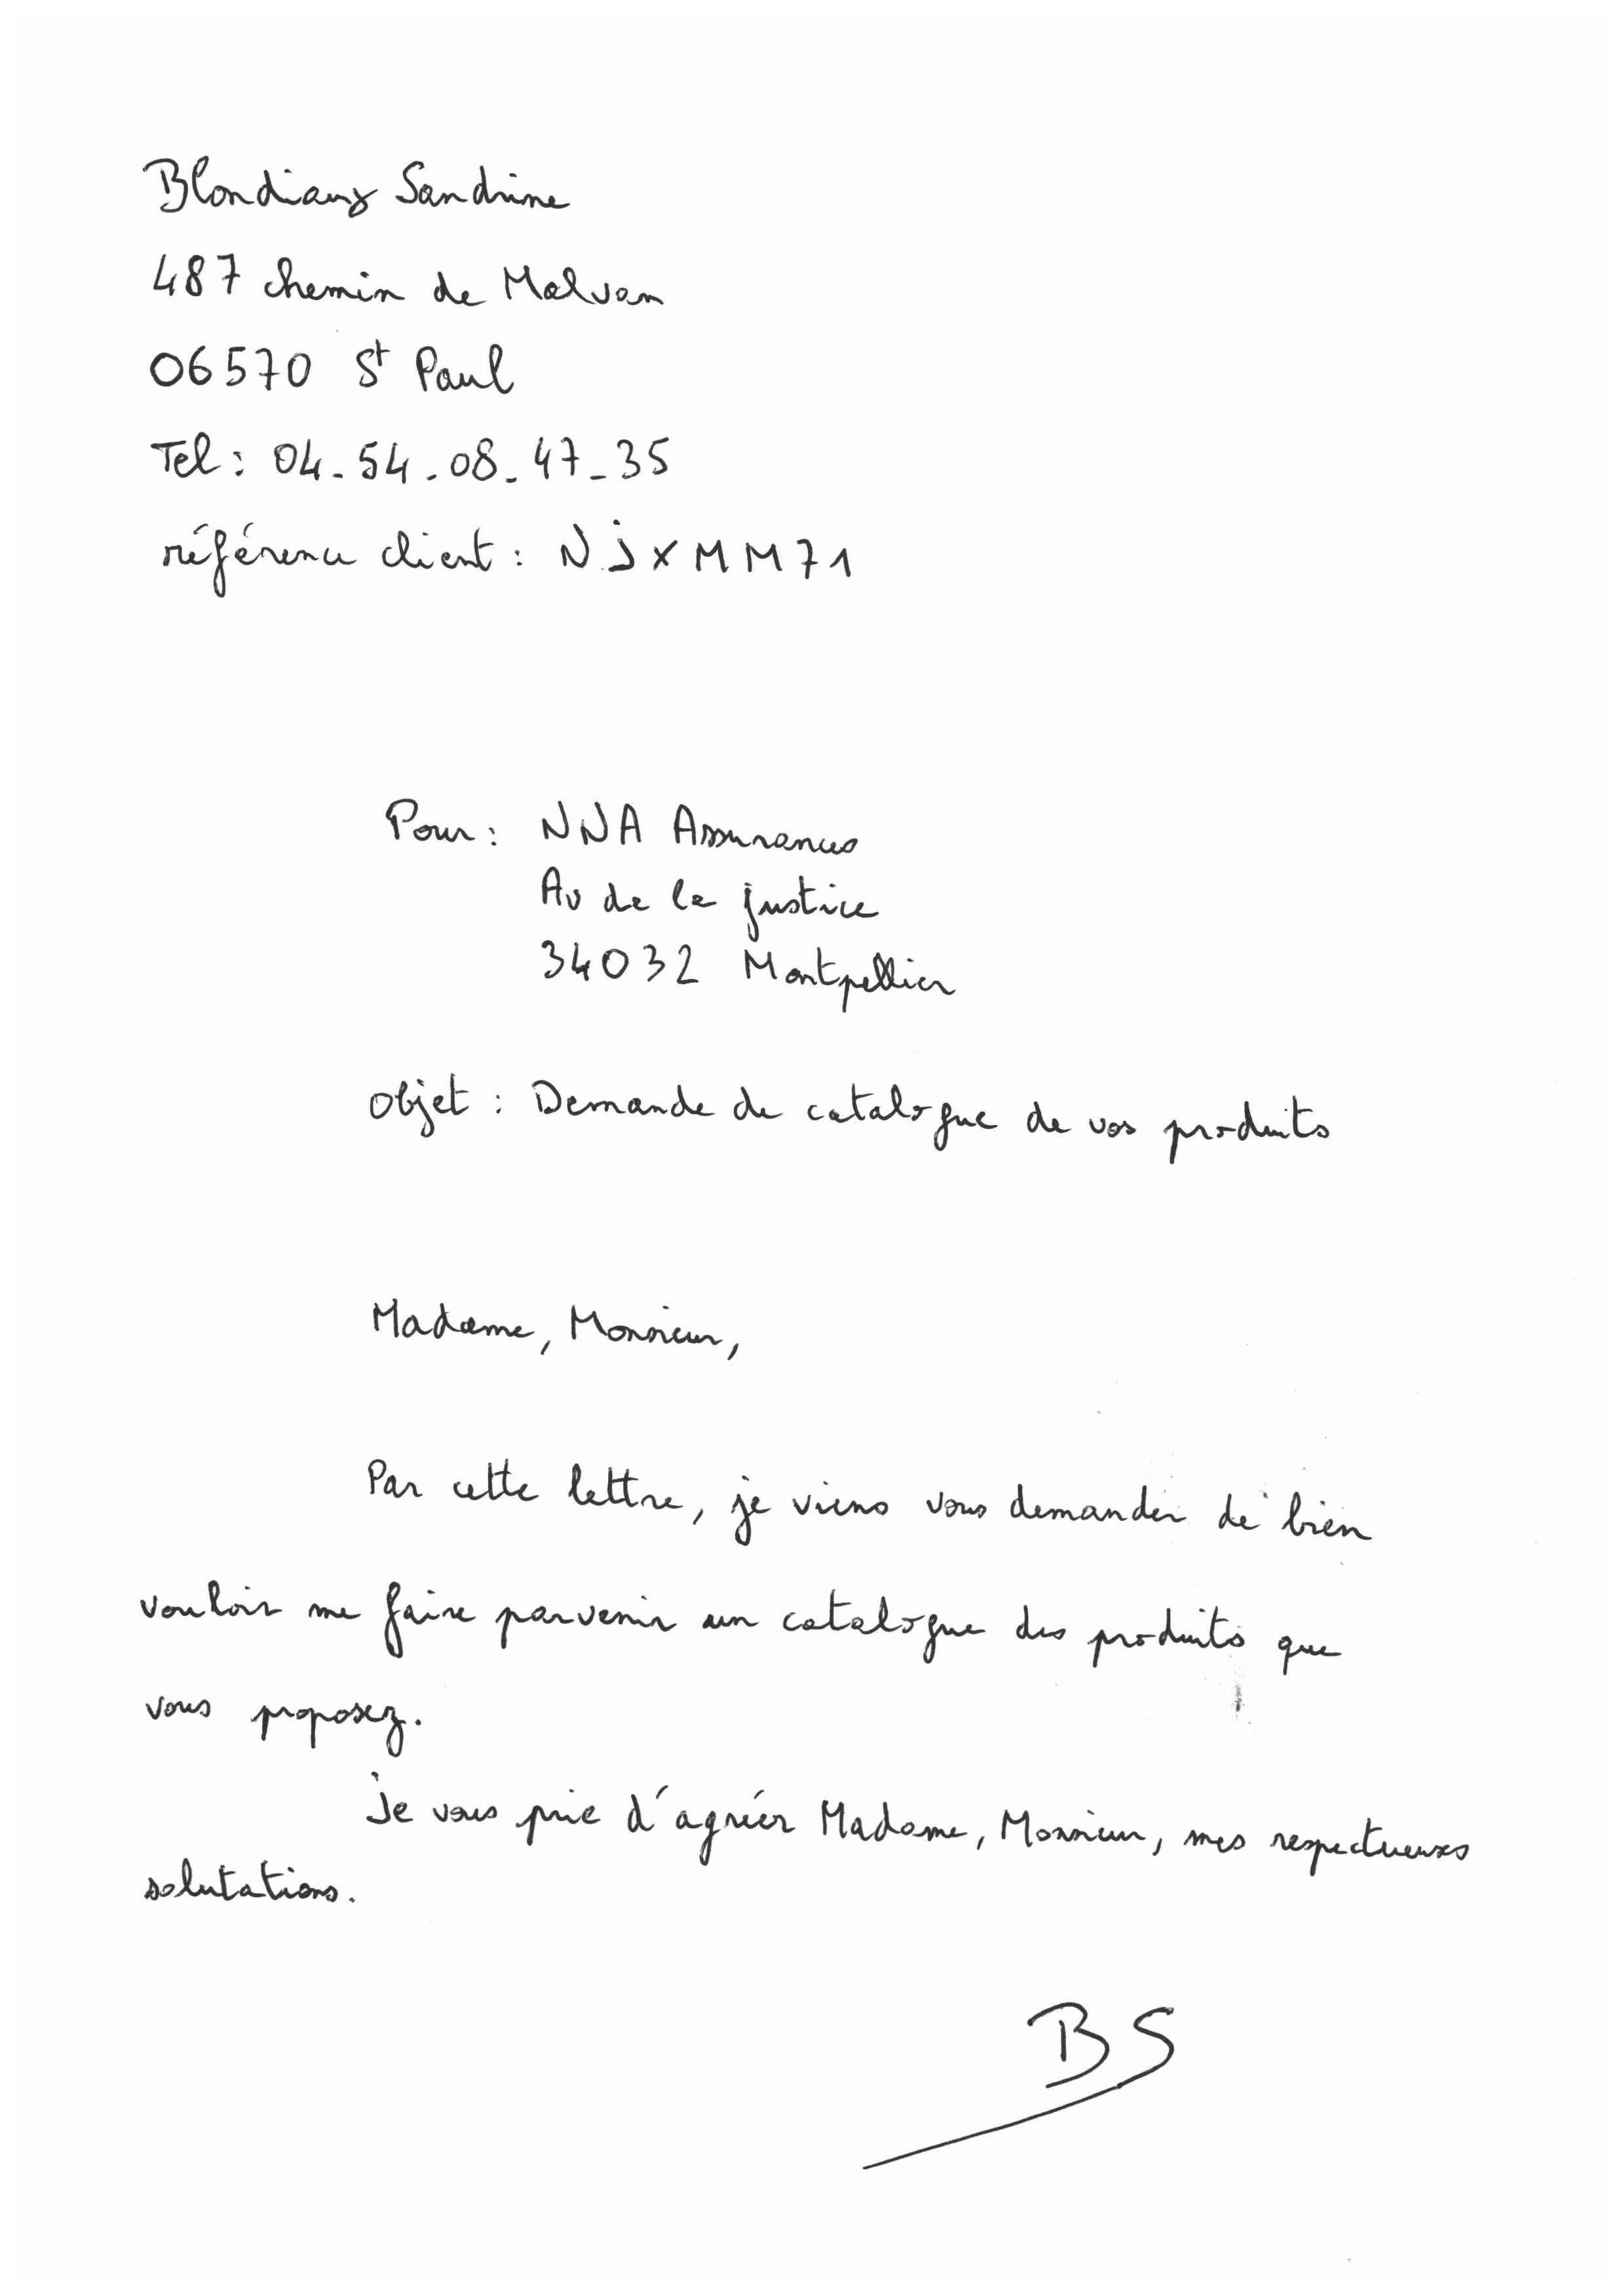 Blondiaux Sandrine
487 chemin de Malvan
06570 St Paul
Tel : 04-54-08-47-35
référence client : NJXMM71
Pour : NNA Assurances
Av de la justice
34032 Montpellier
Objet : Demande de catalogue de vos produits
Madame, Monsieur,
Par cette lettre, je viens vous demander de bien
vouloir me faire parvenir un catalogue des produits que
vous proposez.
Je vous prie d'agréer Madame, Monsieur, mes respectueuses
salutations.
BS